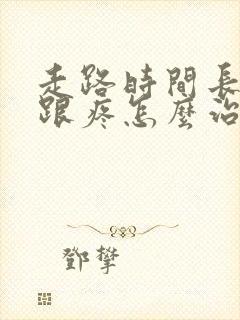 走路時間長
跟疼怎麼治
鄧攀